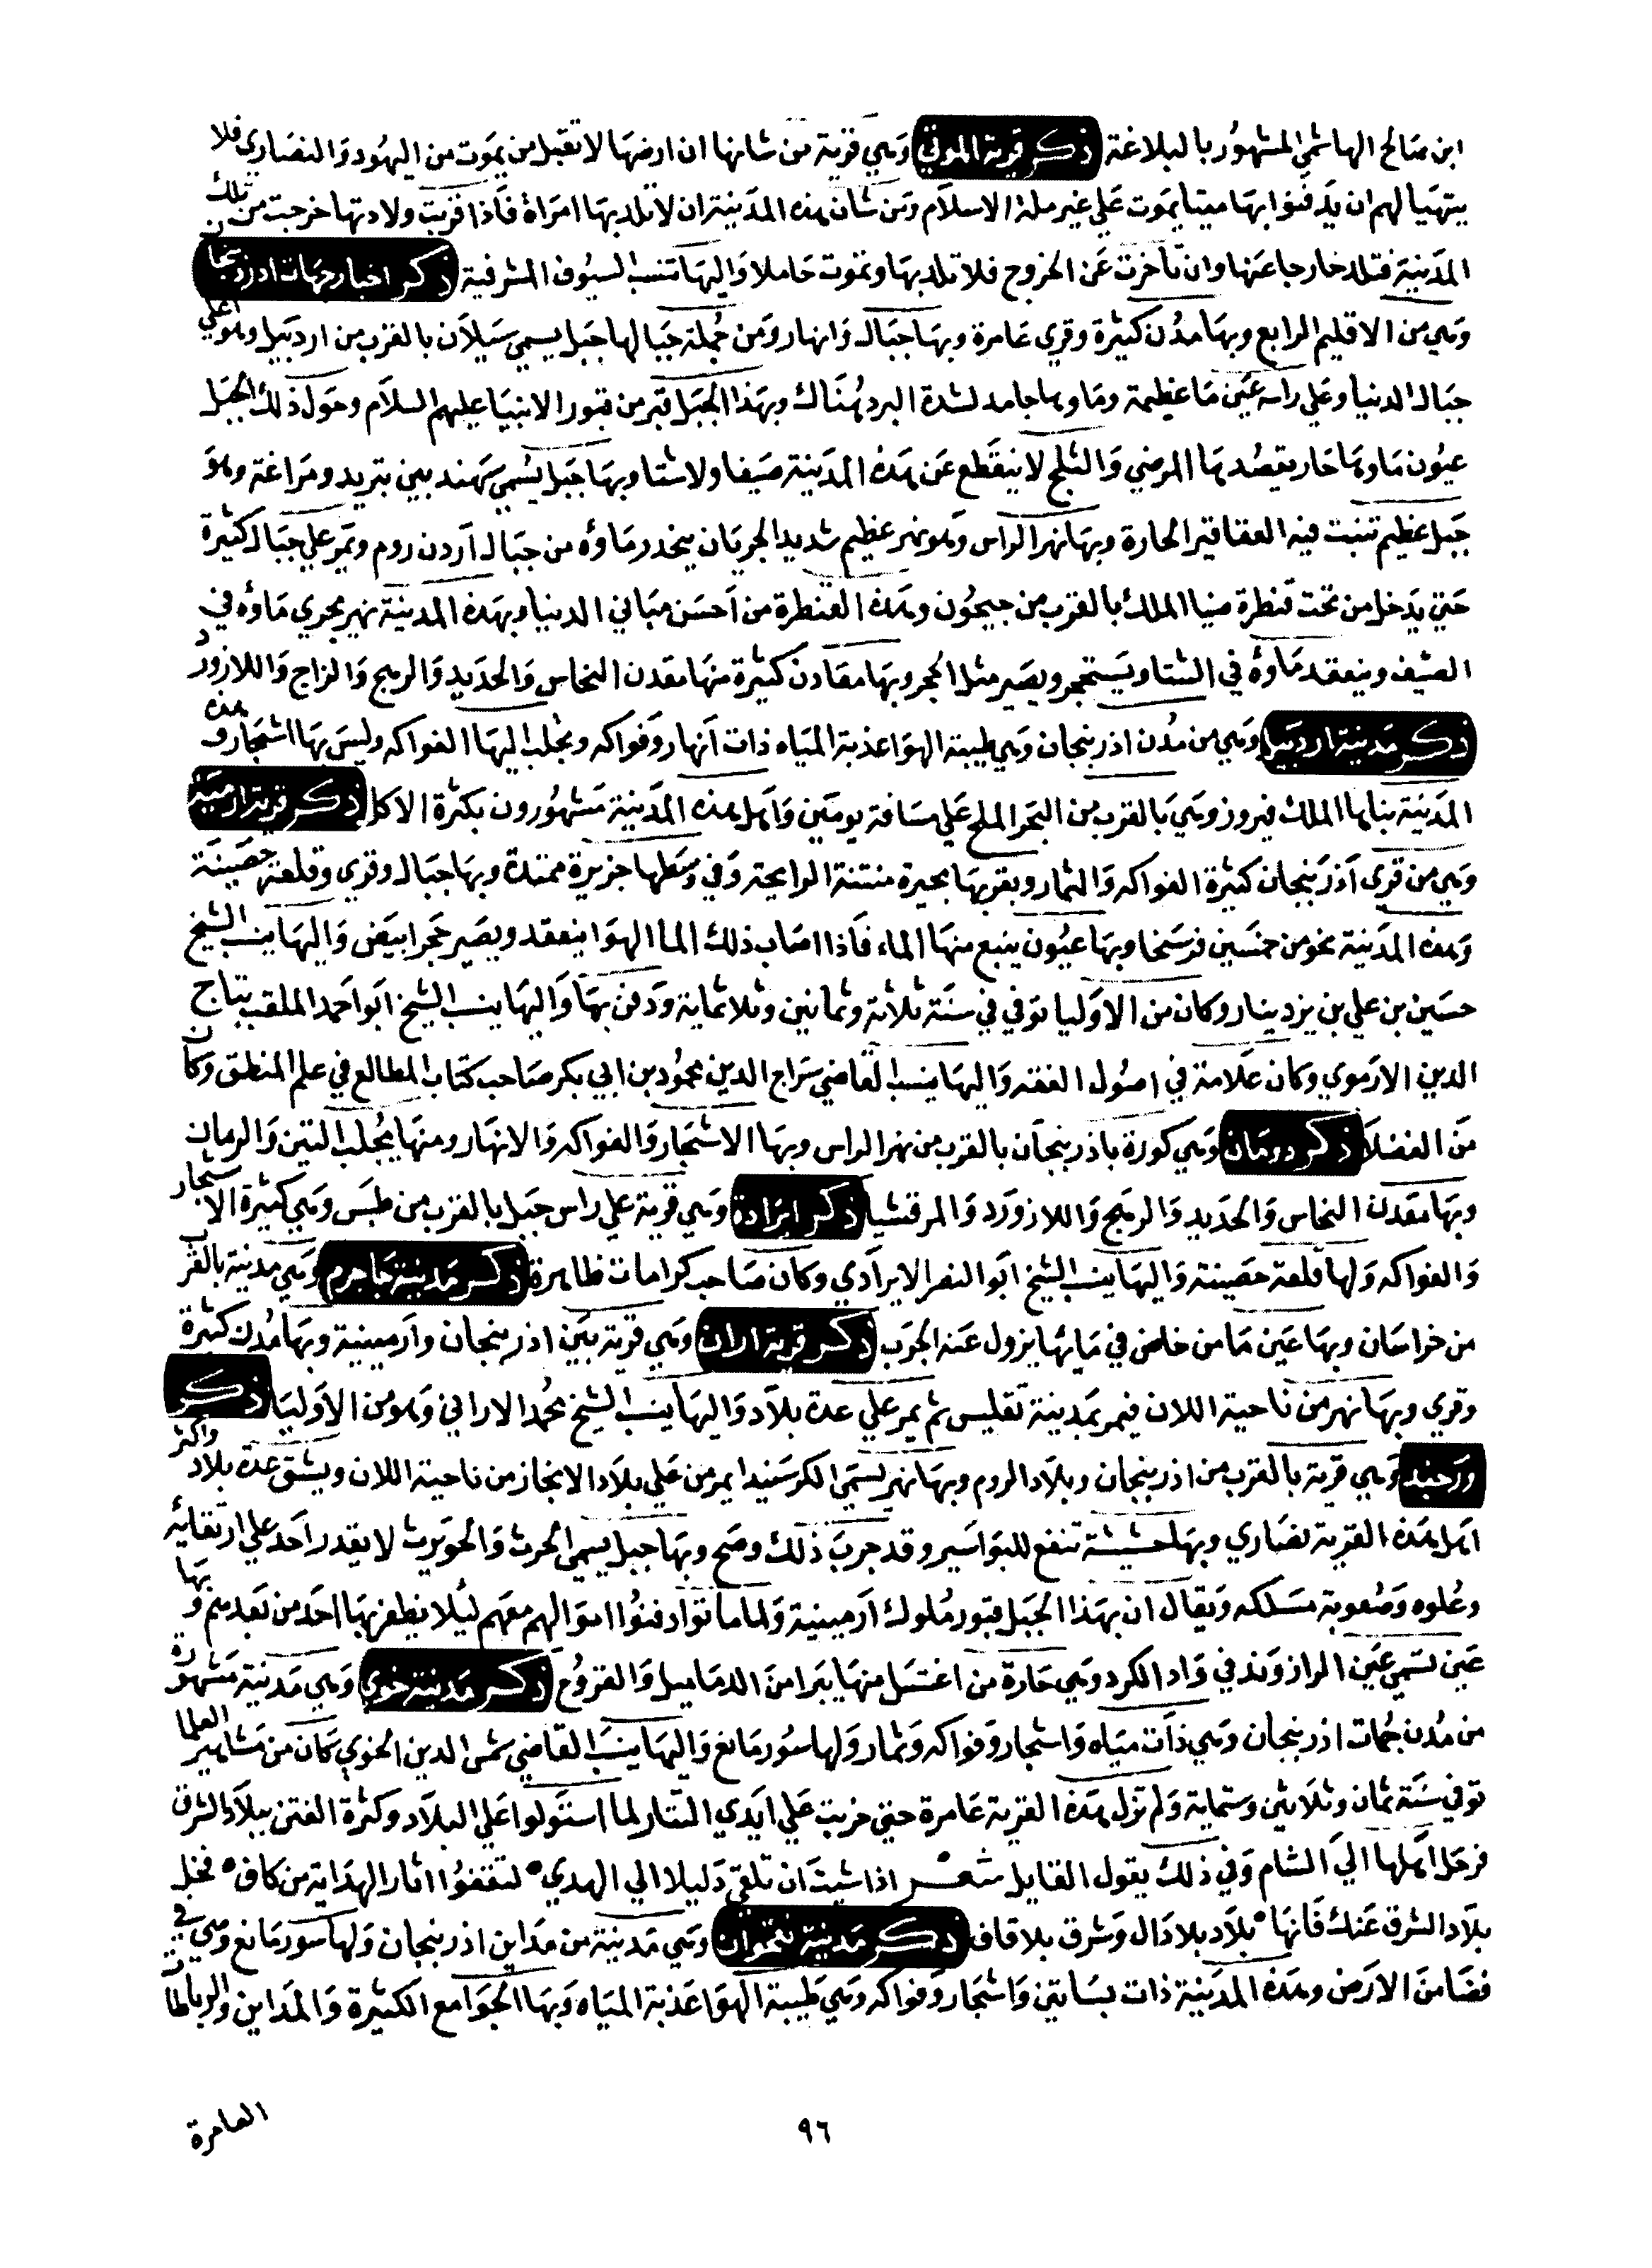 ابن صالح الهاشمي المشهور بالبلاغة ذكر قرية الموتي وهي قرية من شانها ان ارضها لا تقبل من يموت من اليهود والنصاري فلا
يتهيا لهم ان يدفنوا بها ميتا يموت علي غير ملة الاسلام ومن شان هذه المدينة ان لا تلد بها امراة فاذا قربت ولادتها خرجت من تلك
المدينة فتلد خارجا عنها وان تاخرت عن الخروج فلا تلد بها وتموت حاملا واليها تنسب السيوف المشرفية ذكر اخبار جهات اذربيجان
وهي من الاقليم الرابع وبها مدن كثيرة وقري عامرة وبها جبال وانهار ومن جملة جبالها جبل يسمي سيلان بالقرب من اردبيل وهو اعلي
جبال الدنيا وعلي راسه عين ما عظيمة وماوها جامد لشدة البرد هناك وبهذا الجبل قبر من قبور الانبيا عليهم السلام وحول ذلك الجبل
عيون ماوها حار يقصدها المرضي والثلج لا ينقطع عن هذه المدينة صيفا ولا شتا وبها جبل يسمي سهند بين تبريز ومراغة وهو
جبل عظيم تنبت فيه العقاقير الحارة وبها نهر الراس وهو نهر عظيم شديد الجريان ينحدر ماؤه من جبال اردن روم وتمر علي جبال كثيرة
حتي يدخل من تحت قنطرة ضيا الملك بالقرب من جيحون وهذه القنطرة من احسن مباني الدنيا وبهذه المدينة نهر يجري ماؤه في
الصيف وينعقد ماؤه في الشتا ويستحجر ويصير مثل الحجر وبها معادن كثيرة منها معدن النحاس والحديد والرهج والزاج واللازورد
ذكر مدينة اردبيل وهي من مدن اذربيجان وهي طيبة الهوا عذبة المياه ذات انهار وفواكه ويجلب اليها الفواكه وليس بها اشجار وهذه
المدينة بناها الملك فيروز وهي بالقرب من البحر الملح علي مسافة يومين واهل هذه المدينة مشهورون بكثرة الاكل ذكر قرية ارمية
وهي من قري اذربيجان كثيرة الفواكه والثمار وبقربها بحيرة منتنة الرايحة وفي وسطها جزيرة ممتدة وبها جبال وقري وقلعة حصينة
وهذه المدينة نحو من خمسين فرسخا وبها عيون ينبع منها الماء فاذا اصاب ذلك الما الهوا ينعقد ويصير حجرا ابيض واليها ينسب الشيخ
حسين بن علي بن يزدينار وكان من الاوليا توفي في سنة ثلاثة وثمانين وثلاثماية ودفن بها واليها ينسب الشيخ ابو احمد الملقب بتاج
الدين الارموي وكان علامة في اصول الفقه واليها ينسب القاضي سراج الدين محمود بن ابي بكر صاحب كتاب المطالع في علم المنطق وكان
من الفضلا ذكر دزمان وهي كورة باذربيجان بالقرب من نهر الراس وبها الاشجار والفواكه والانهار ومنها يجلب التين والرمان
وبها معدن النحاس والحديد والرهج واللازورد والمرقشيا ذكر ايرادة وهي قرية علي راس جبل بالقرب من طبس وهي كثيرة الاشجار
والفواكه ولها قلعة حصينة واليها ينسب الشيخ ابو النصر الايرادي وكان صاحب كرامات ظاهرة ذكر مدينة جاجرم وهي مدينة بالقرب
من خراسان وبها عين ما من خاض في مايها يزول عنه الجرب ذكر قرية اران وهي قرية بين اذربيجان وارمينية وبها مدن كثيرة
وقري وبها نهر من ناحية اللان فيمر بمدينة تفليس ثم يمر علي عدة بلاد واليها ينسب الشيخ محمد الاراني وهو من الاوليا ذكر
وهي قرية بالقرب من اذربيجان وبلاد الروم وبها نهر يسمي الكر يمر من علي بلاد الابخاز من ناحية اللان ويشق عدة بلاد واكثر
اهل هذه القرية نصاري وبها حشيشة تنفع للبواسير وقد جرب ذلك وصح وبها جبل يسمي الحرث والحويرث لا يقدر احد علي ارتقايه
وعلوه وصعوبة مسلكه ويقال ان بهذا الجبل قبور ملوك ارمينية ولما ماتوا دفنوا اموالهم معهم ليلا يظفر بها احد من بعدهم وبها
عين تسمي عين الرازوند في واد الكرد وهي حارة من اغتسل منها يبرا من الدماميل والقروح ذكر مدينة خوي وهي مدينة مشهورة
من مدن جهات اذربيجان وهي ذات مياه واشجار وفواكه وثمار ولها سور مانع واليها ينسب القاضي شمس الدين الخوي كان من مشاهير العلما
توفي سنة ثمان وثلاثين وستماية ولم تزل هذه القرية عامرة حتي خربت علي ايدي التتار لما استولوا علي البلاد وكثرة الفتن ببلاد الشرق
فرحل اهلها الي الشام وفي ذلك يقول القايل شعر اذا شيت ان تلقي دليلا الي الهدي لتقفوا اثار الهداية من كاف فخل
بلاد الشرق عنك فانها بلاد بلا دال وشرق بلا قاف ذكر مدينة نخجوان وهي مدينة من مداين اذربيجان ولها سور مانع وهي في
فضا من الارض وهذه المدينة ذات بساتين واشجار وفواكه وهي طيبة الهوا عذبة المياه وبها الجوامع الكثيرة والمداين والرباطات
العامرة
٩٦